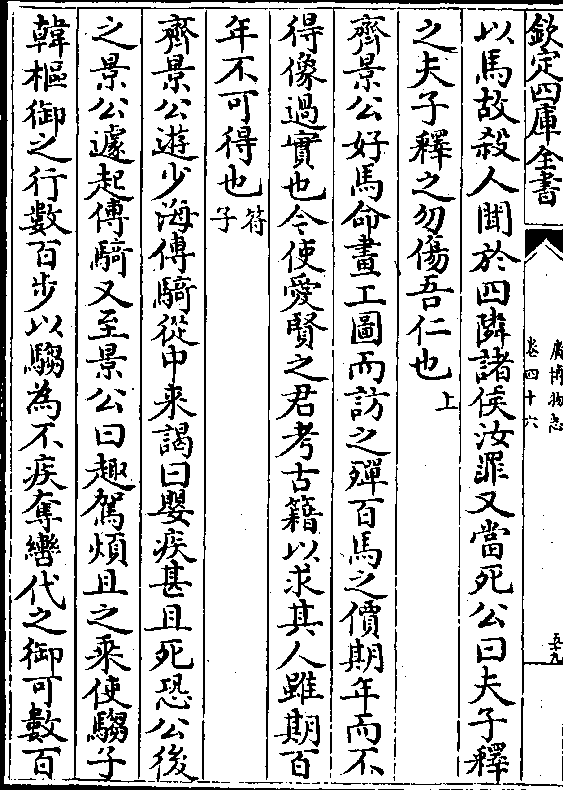 欽定四庫全書
廣博物志
卷四十六
五十九
以馬故殺人聞於四隣諸侯汝罪又當死公曰夫子釋
之夫子釋之勿傷吾仁也上
齊景公好馬命畫工圖而訪之殫百馬之價期年而不
得像過實也今使愛賢之君考古籍以求其人雖期百
年不可得也符子
齊景公遊少海傅騎從中來謁曰嬰疾甚且死恐公後
之景公遽起傅騎又至景公曰趣駕煩且之乘使騶子
韓樞御之行數百步以騶為不疾奪轡代之御可數百